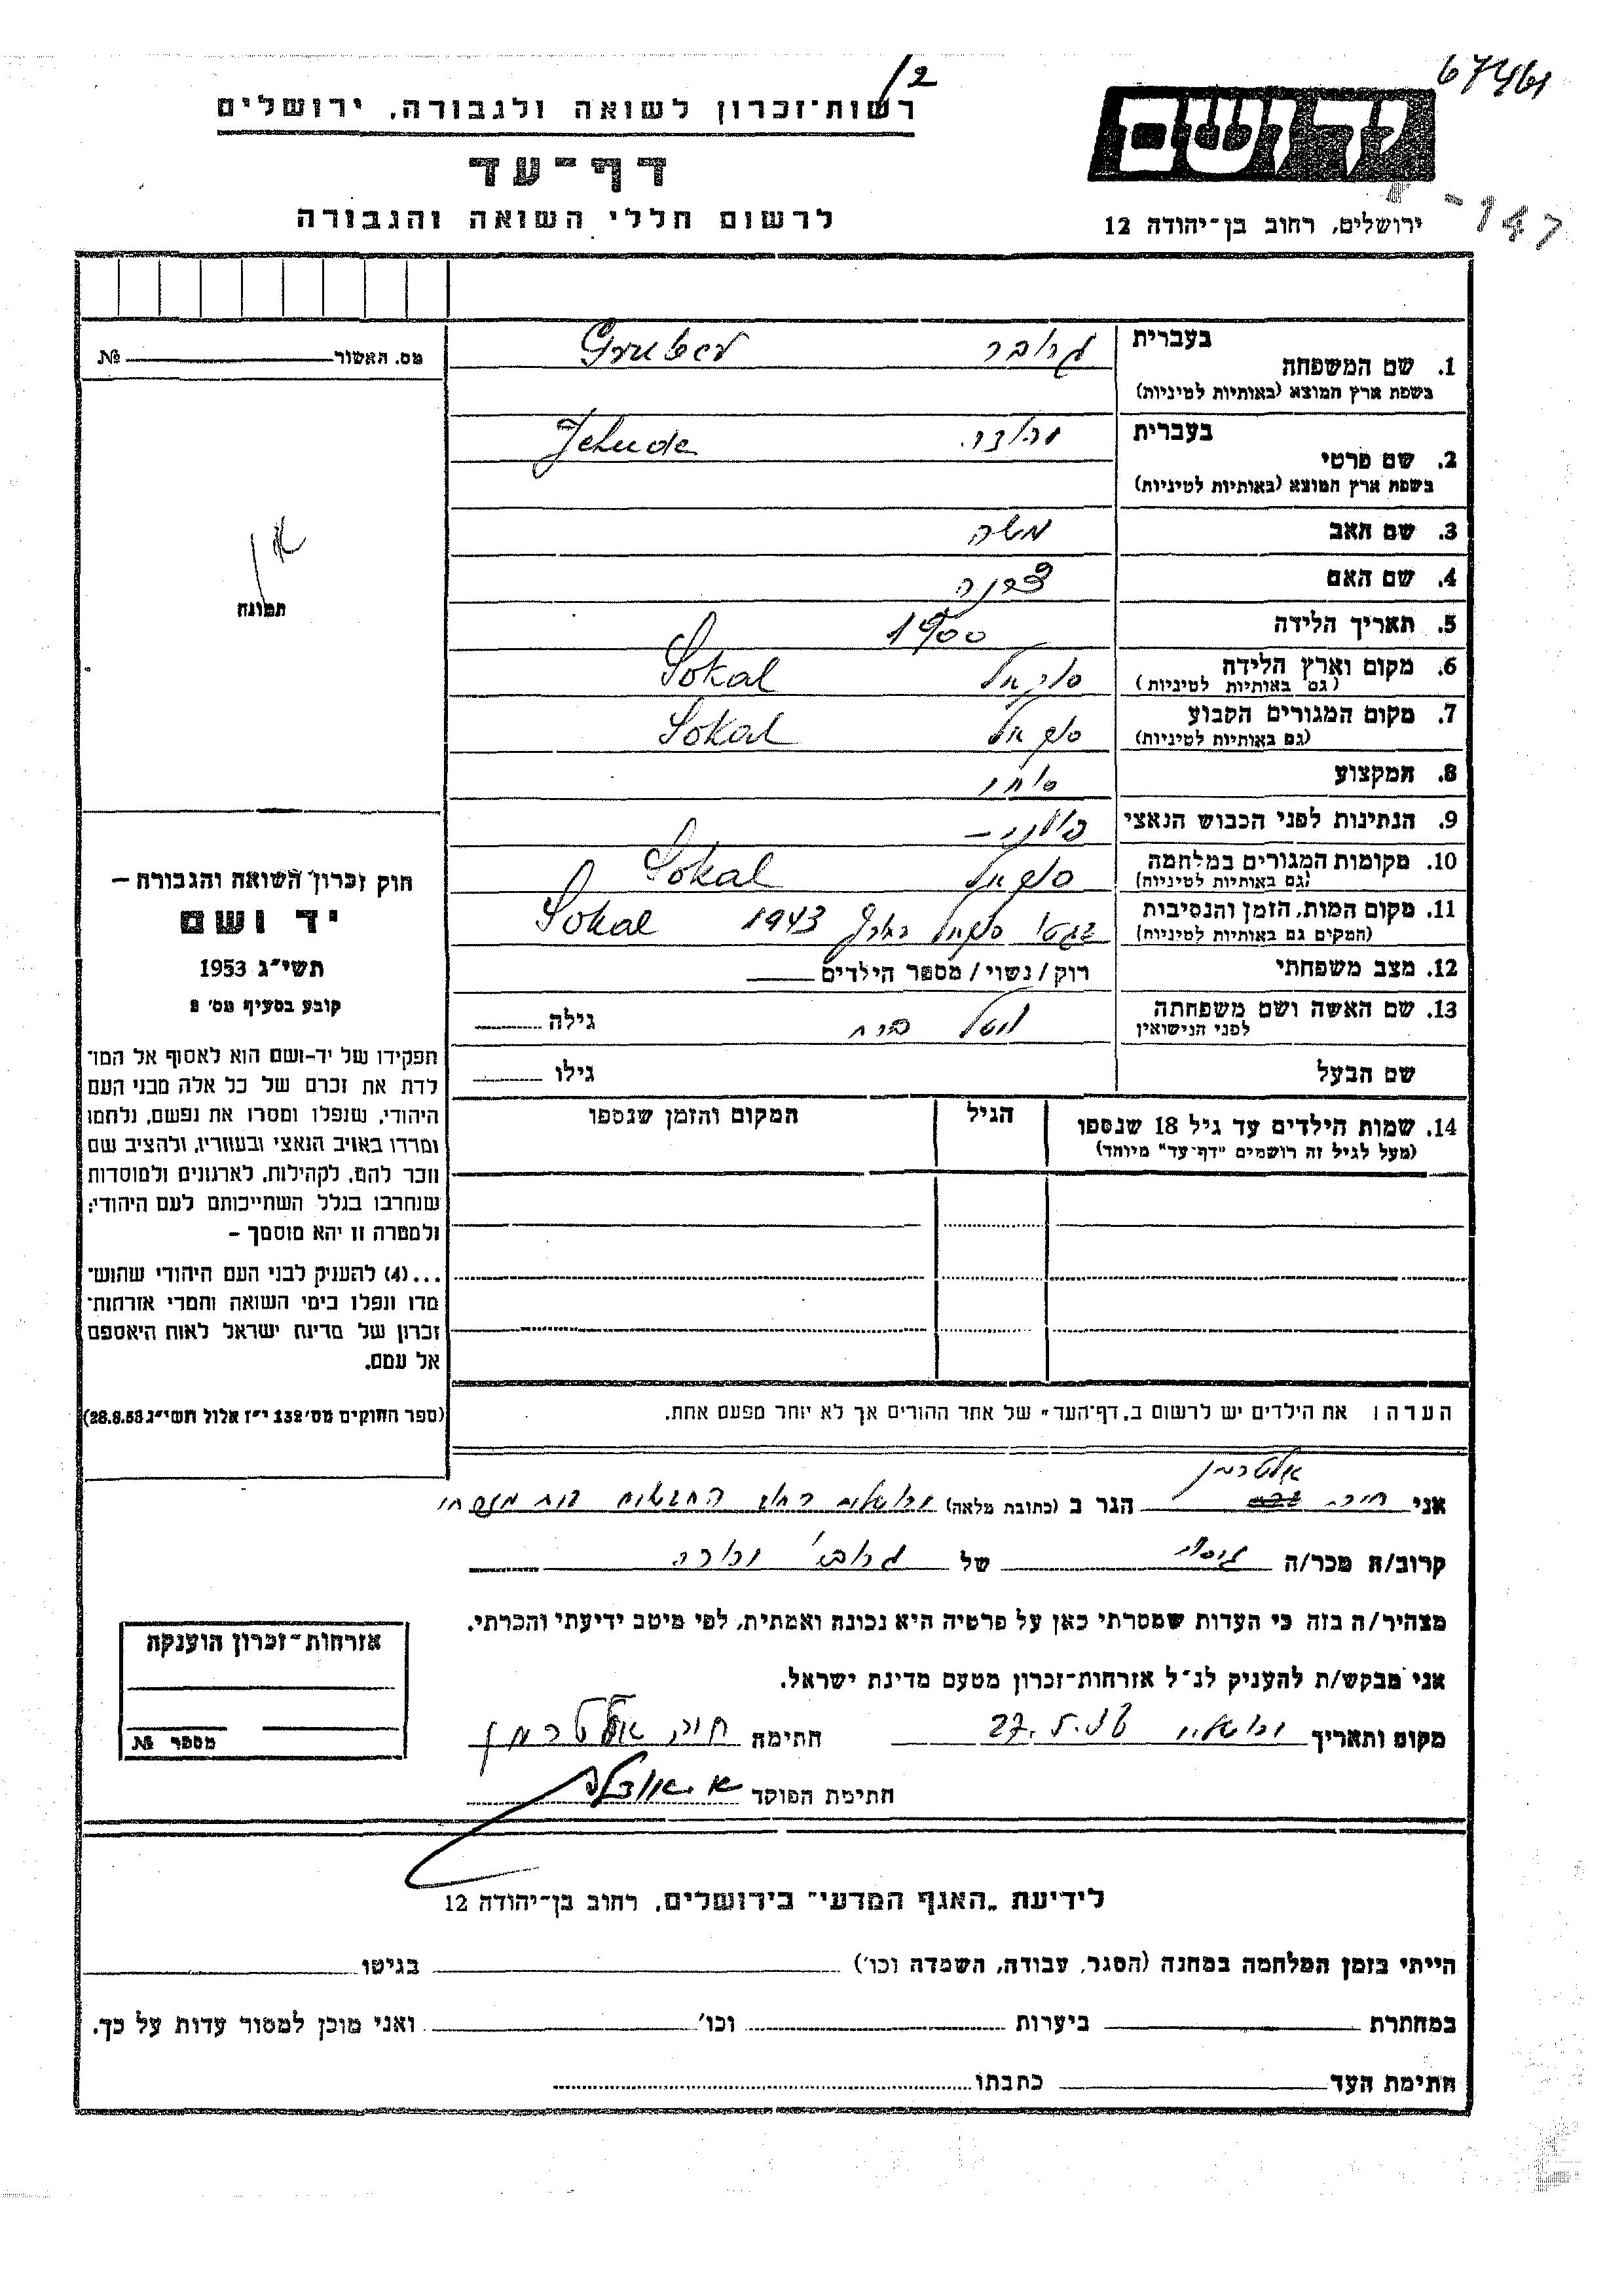 67461
2/
רשות־זכרון לשואה ולגבורה, ירושלים
יד ושם
דף־עד
לרשום חללי השואה והגבורה
ירושלים, רחוב בן־יהודה 12
147
מס. האשור № 
תמונה
חוק זכרון השואה והגבורה —
יד ושם
תשי״ג 1953
קובע בסעיף מס׳ 2
תפקידו של יד-ושם הוא לאסוף אל המו־
לדת את זכרם של כל אלה מבני העם
היהודי, שנפלו ומסרו את נפשם, נלחמו
ומרדו באויב הנאצי ובעוזריו, ולהציב שם
וזכר להם, לקהילות, לארגונים ולמוסדות
שנחרבו בגלל השתייכותם לעם היהודי;
ולמטרה זו יהא מוסמך –
...(4) להעניק לבני העם היהודי שהוש־
מדו ונפלו בימי השואה והמרי אזרחות־
זכרון של מדינת ישראל לאות היאספם
אל עמם.
(ספר החוקים מס׳ 132 י״ז אלול תשי״ג 28.8.53)
בעברית גרובר Gruber
1. שם המשפחה
בשפת ארץ המוצא (באותיות לטיניות)
בעברית Jehude
2. שם פרטי
בשפת ארץ המוצא (באותיות לטיניות)
3. שם האב משה
4. שם האם
5. תאריך הלידה 1900
6. מקום וארץ הלידה סוקאל Sokal
(גם באותיות לטיניות)
7. מקום המגורים הקבוע סוקאל Sokal
(גם באותיות לטיניות)
8. המקצוע סוחר
9. הנתינות לפני הכבוש הנאצי פולני –
10. מקומות המגורים במלחמה סוקאל Sokal
(גם באותיות לטיניות)
11. מקום המות, הזמן והנסיבות בגטו סוקאל 1943 Sokal
(המקום גם באותיות לטיניות)
12. מצב משפחתי רוק / נשוי / מספר הילדים
13. שם האשה ושם משפחתה גילה
לפני הנישואין
שם הבעל גילו
14. שמות הילדים עד גיל 18 שנספו הגיל המקום והזמן שנספו
(מעל לגיל זה רושמים "דף־עד" מיוחד)
הערה: את הילדים יש לרשום ב„דף־העד״ של אחד ההורים אך לא יותר מפעם אחת.
אלטרמן
אני חיה הגר ב (כתובת מלאה)
קרוב/ה מכר/ה גיסה של גרובר יהודה
מצהיר/ה בזה כי העדות שמסרתי כאן על פרטיה היא נכונה ואמתית, לפי מיטב ידיעתי והכרתי.
אני מבקש/ת להעניק לנ״ל אזרחות־זכרון מטעם מדינת ישראל.
מקום ותאריך ירושלים 27.5.56 חתימה חיה אלטרמן
חתימת הפוקד
אזרחות־זכרון הוענקה
מספר №
לידיעת „האגף המדעי״ בירושלים, רחוב בן־יהודה 12
הייתי בזמן המלחמה במחנה (הסגר, עבודה, השמדה וכו׳) בגיטו
במחתרת ביערות וכו׳ ואני מוכן למסור עדות על כך.
חתימת העד כתבתו